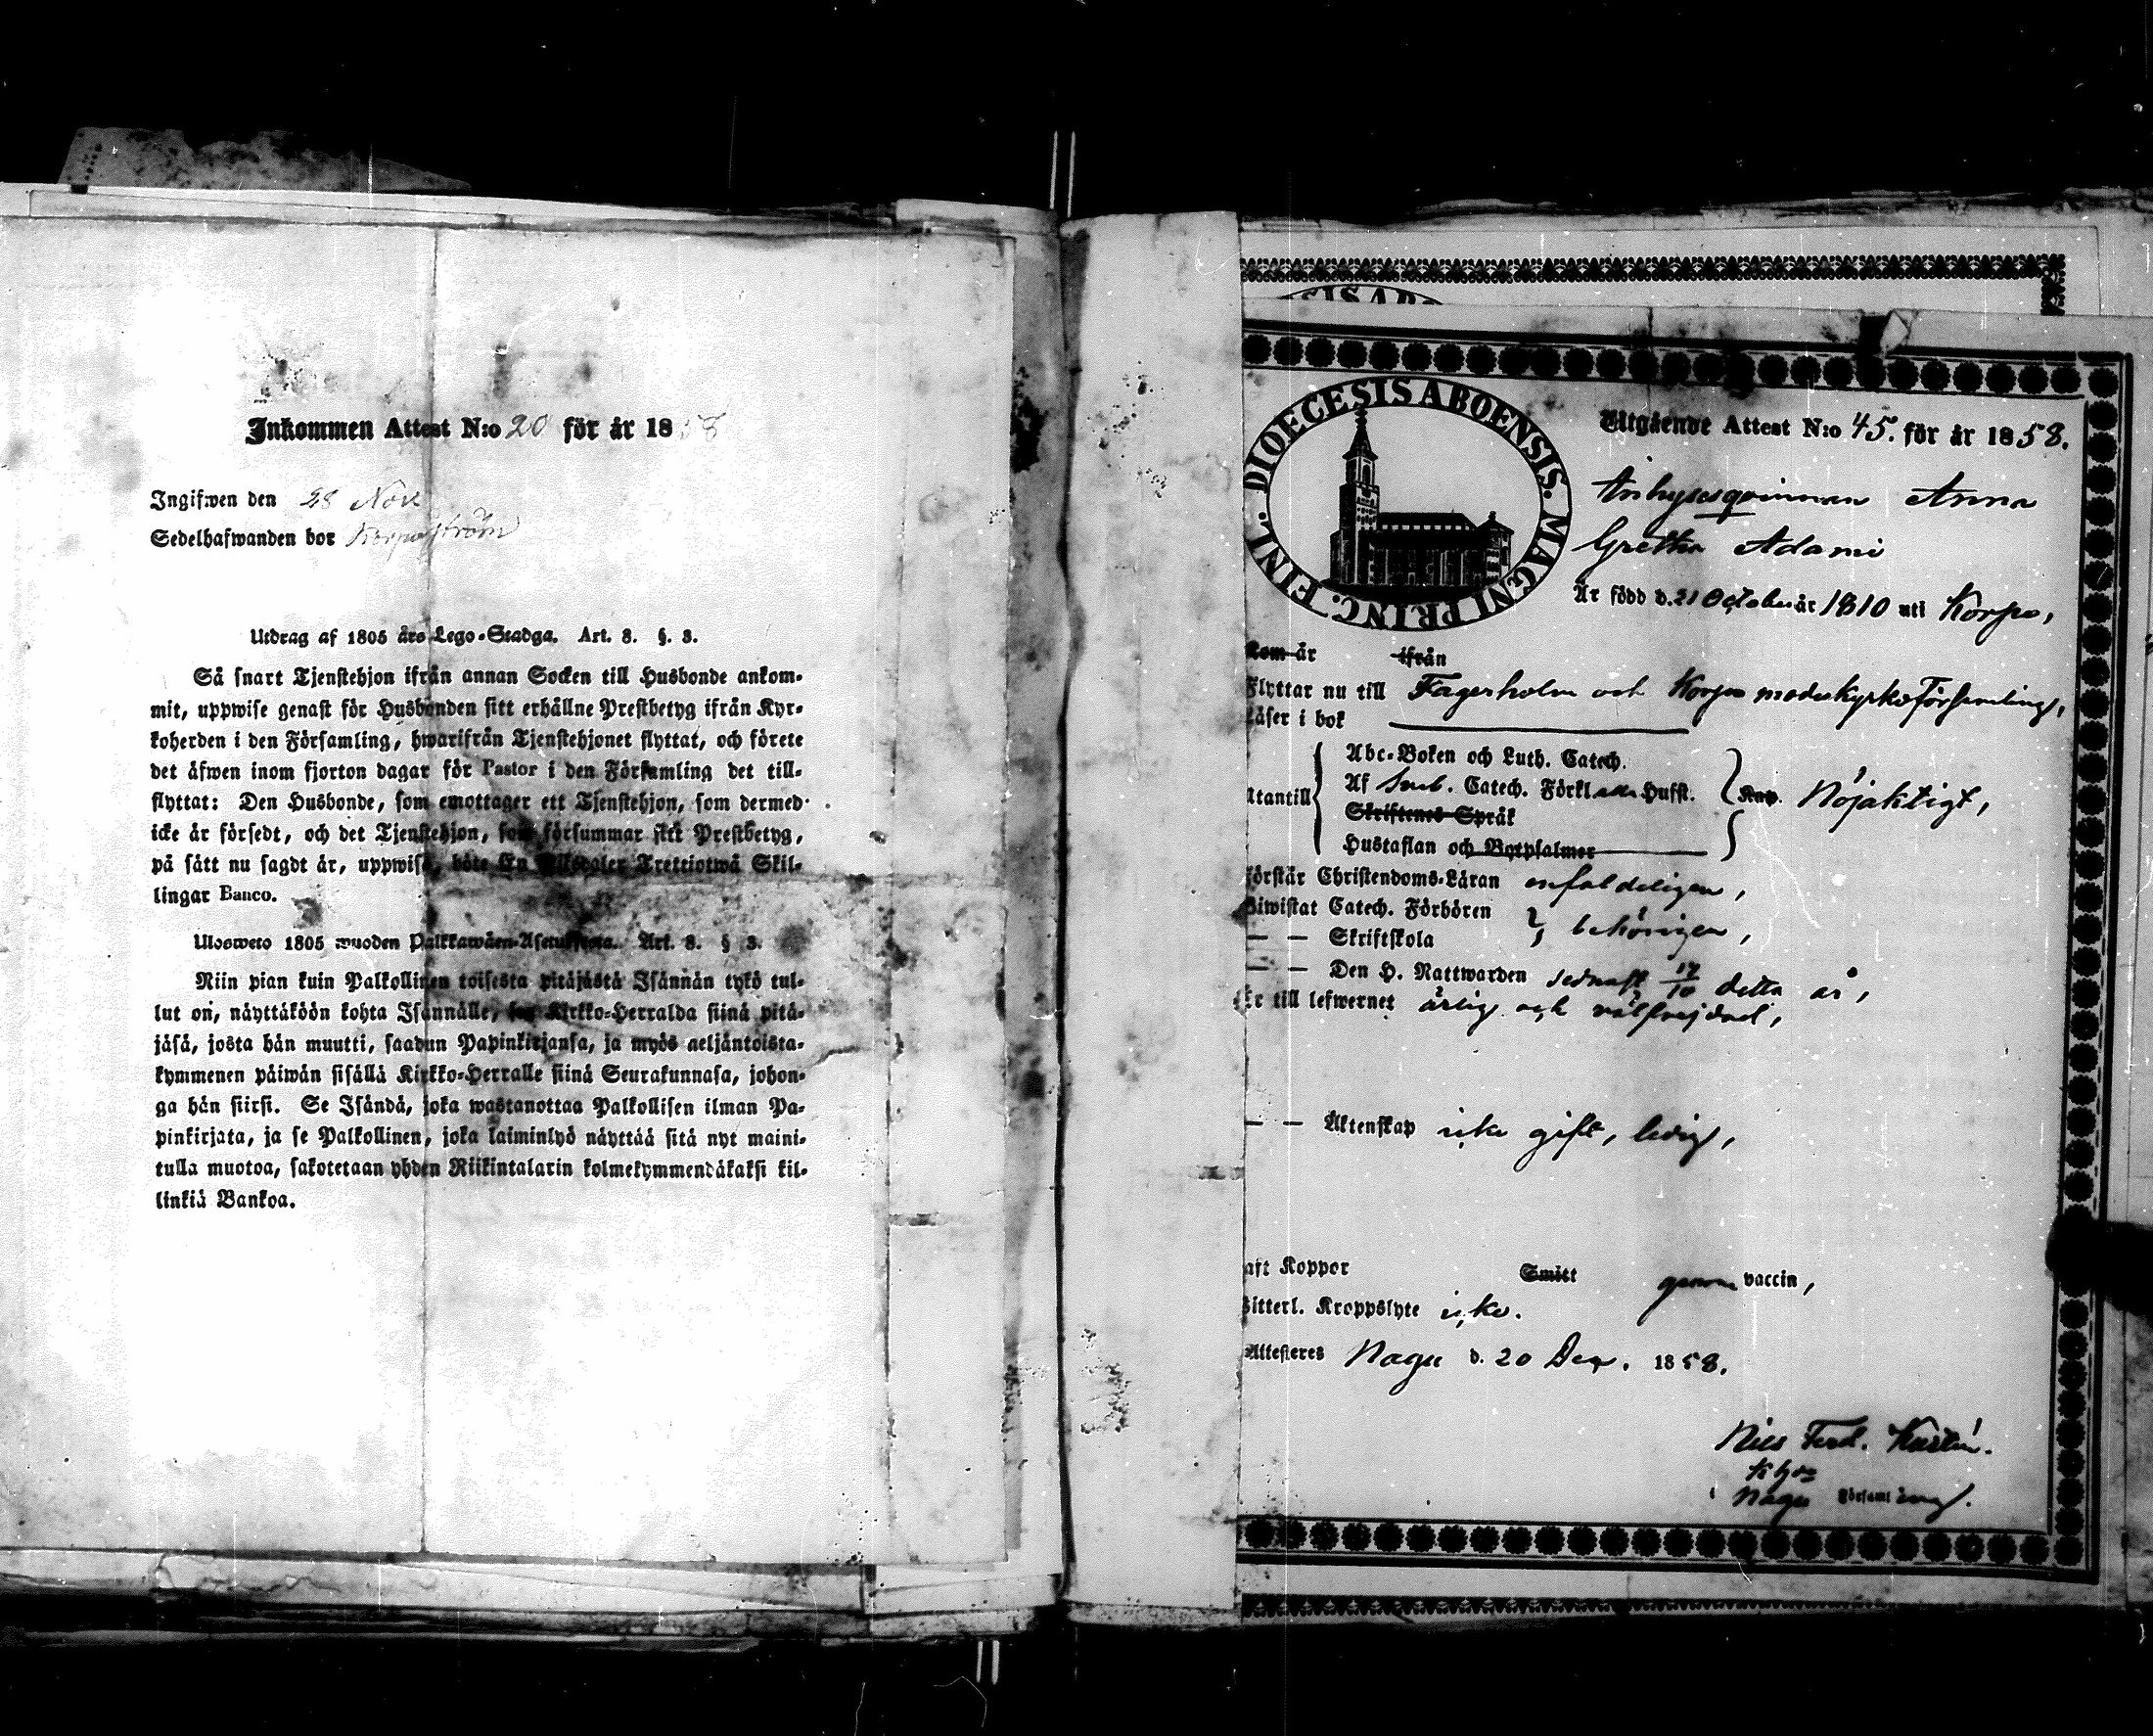 Inkommen Attest N:o 20 för år 1858
Ingifwen den 28 Nov
Sedelhafwanden bor Korpoström
Utdrag af 1805 års Lego-Stadga. Art. 8. §. 3.
Så snart Tjenstehjon ifrån annan Socken till Husbonde ankom-
mit, uppwise genast för Husbonden sitt erhållne Prestbetyg ifrån Kyr-
koherden i den Församling, hwarifrån Tjenstehjonet flyttat, och förete
det äfwen inom fjorton dagar för Pastor i den Församling det till-
flyttat: Den Husbonde, som emottager ett Tjenstehjon, som dermed
icke är försedt, och det Tjenstehjon, som försummar sitt Prestbetyg,
på sätt nu sagdt är, uppwisa, böte En Riksdaler Trettiotwå Skil-
lingar Banco.
Ulosweto 1805 wuoden Palkkawäen-Asetuksesta. Art. 8. § 3.
Niin pian kuin Palkollinen toisesta pitäjästä Isännän tykö tul-
lut on, näyttäköön kohta Isännälle, sen Kirkko-Herralda siinä pitä-
jäsä, josta hän muutti, saadun Papinkirjansa, ja myös neljäntoista-
kymmenen päiwän sisällä Kirkko-Herralle siinä Seurakunnasa, johon-
ga hän siirsi. Se Isändä, joka wastanottaa Palkollisen ilman Pa-
pinkirjata, ja se Palkollinen, joka laiminlyö näyttää sitä nyt maini-
tulla muotoa, sakotetaan yhden Riikintalarin kolmekymmendäkaksi kil-
linkiä Bankoa.
DIOECESIS ABOENSIS. MAGNI PRINC. FINL.
Utgående Attest N:o 45. för år 1858.
Inhysesqvinnan Anna
Gretha Adami
Är född d. 21 October år 1810 uti Korpo,
Kom år ifrån
Flyttar nu till Fagerholm och Korpo moderkyrkoförsamling,
Läser i bok
Abc-Boken och Luth. Catech.
Utantill Af Sveb. Catech. Förkl Hufst. Kap. Nöjaktigt,
Skriftenes Språk
Hustaflan och Botpsalmer
Förstår Christendoms-Läran enfaldeligen,
Biwistat Catech. Förhören
— — Skriftskola behörigen,
— — Den H. Nattwarden sednast 17/10 detta år,
Är till lefwernet ärlig och välfrejdad,
— — Äktenskap icke gift, ledig,
aft Koppor Smitt genom vaccin,
Sitterl. Kroppslyte icke.
Attesteres Nagu d. 20 Dec. 1858.
Nils Ferd. Kastén.
Khde
i Nagu Församling.